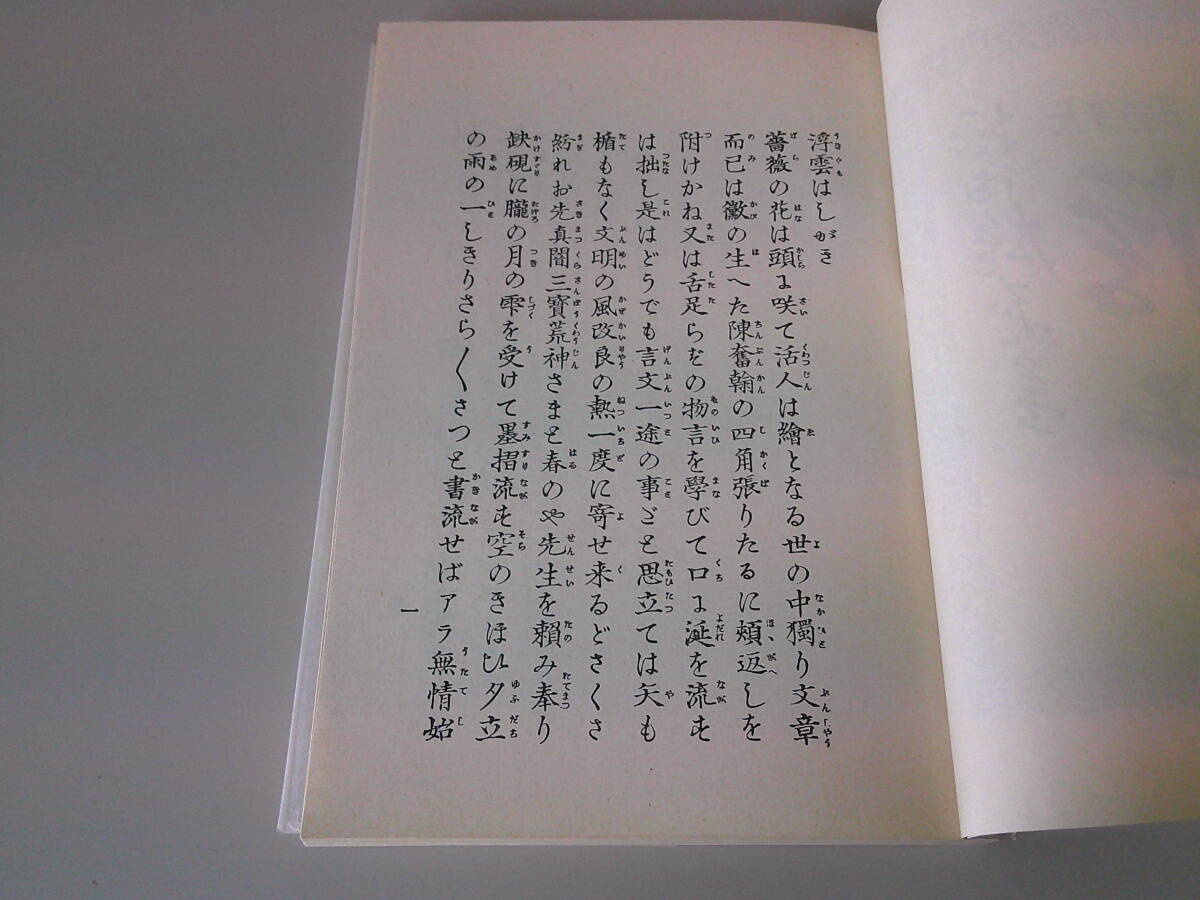 浮雲はしがき
薔薇の花は頭に咲て活人は繪となる世の中獨り文章
而已は黴の生へた陳奮翰の四角張りたるに頬返しを
附けかね又は舌足らずの物言を學びて口に涎を流す
は拙し是はどうでも言文一途の事だと思立ては矢も
楯もなく文明の風改良の熱一度に寄せ来るどさくさ
紛れお先真闇三寳荒神さまと春のや先生を頼み奉り
缺硯に朧の月の雫を受けて墨摺流す空のきほひ夕立
の雨の一しきりさら〳〵さつと書流せばアラ無情始
一